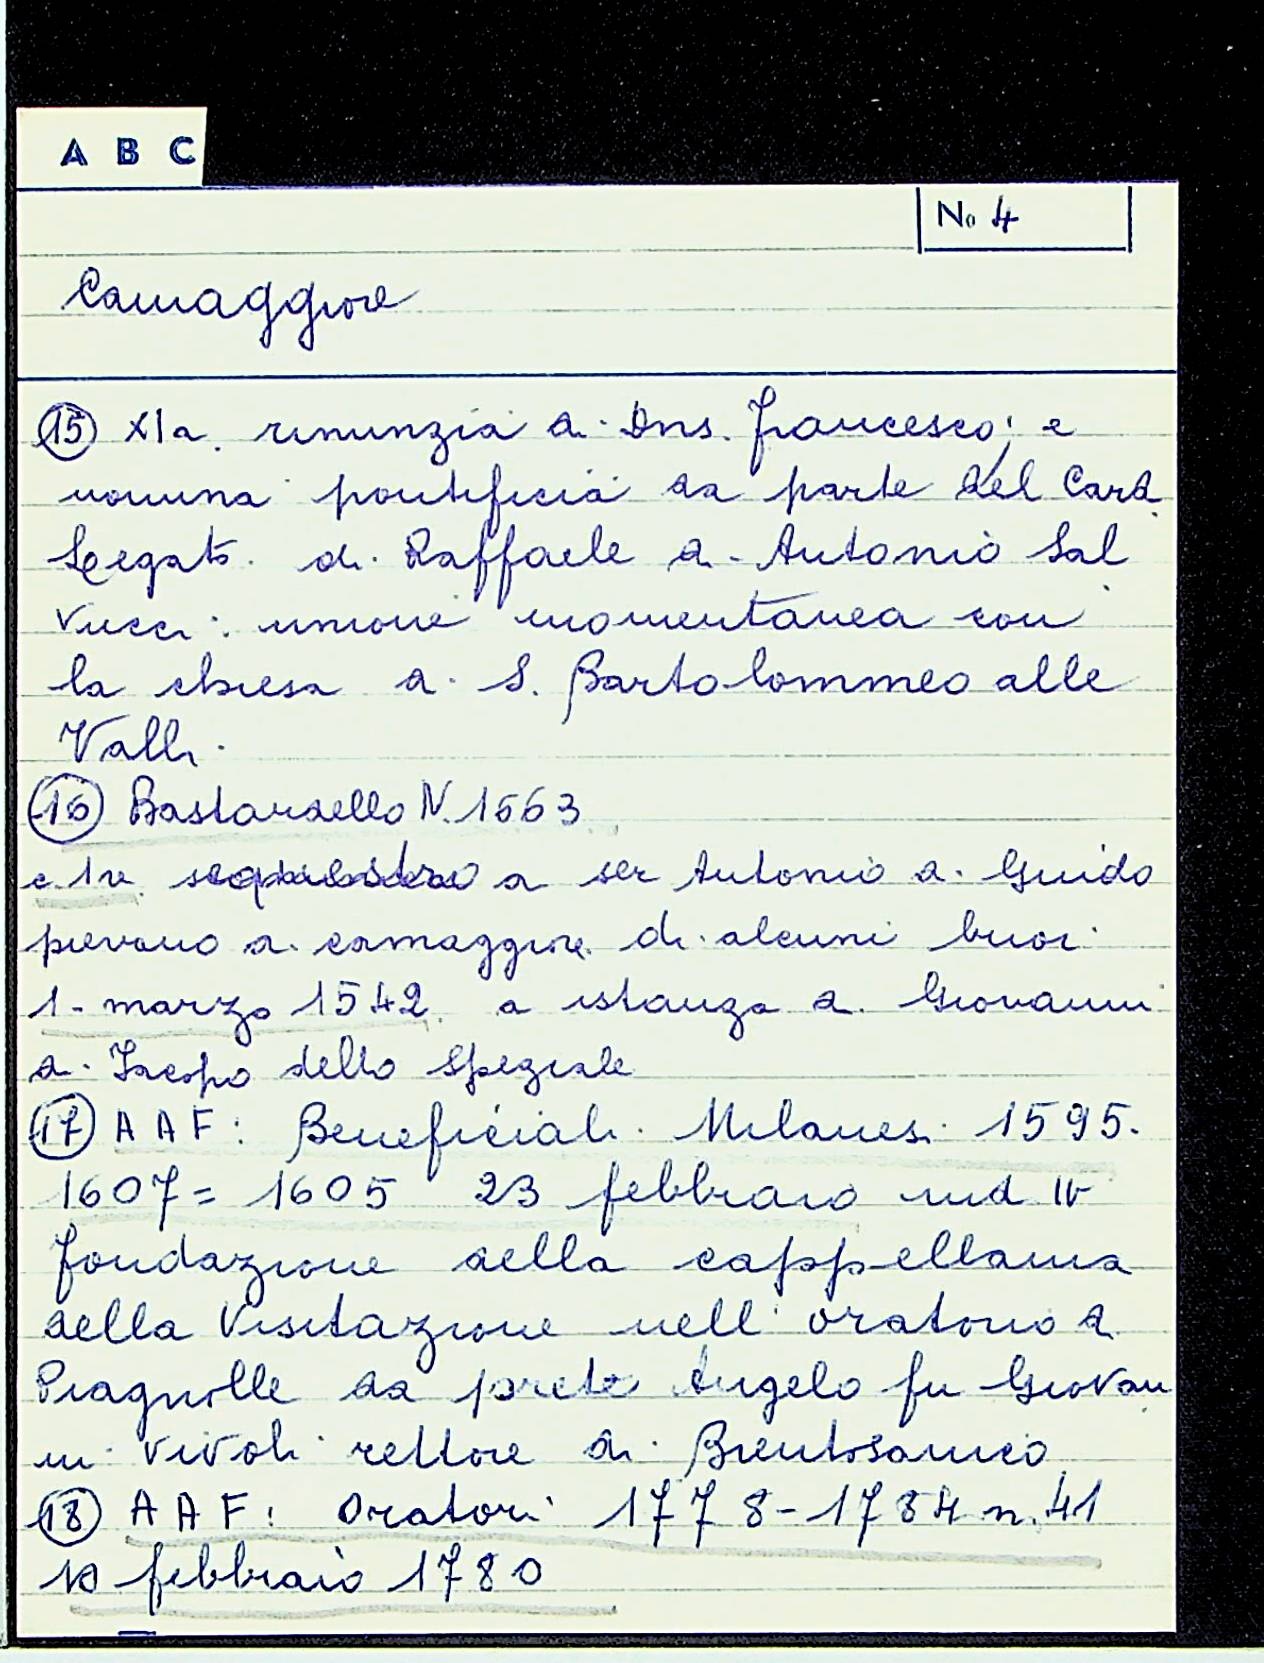 A B C
No 4
Camaggiore
15 XIa. rinunzia di Dns. Francesco; e
nomina pontificia da parte del Card
Legato di Raffaele di Antonio Sal
vucci: unione momentanea con
la chiesa di S. Bartolommeo alle
Valli.
16 Bastardello N. 1563
c 1v sequestro a ser Antonio di Guido
pievano di camaggiore di alcuni buoi
1- marzo 1542 a istanza di Giovanni
di Jacopo dello Speziale
17 A A F: Beneficiali Milanesi 1595.
1607= 1605 23 febbraio ind IV
fondazione della cappellania
della Visitazione nell' oratorio di
Piagnolle da prete Angelo fu Giovan
ni Vivoli rettore di Brentosanico
18 A A F: Oratori 1778-1784 n. 41
febbraio 1780